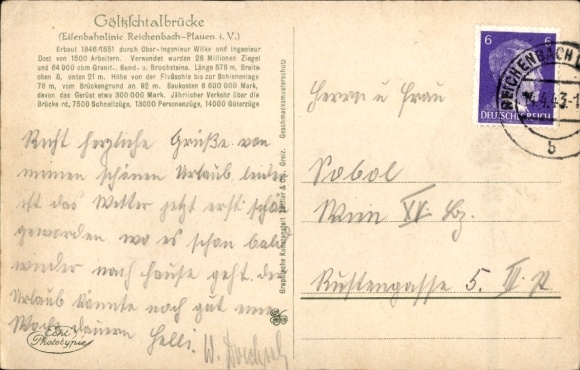 Göltzschtalbrücke
(Eisenbahnlinie Reichenbach-Plauen i. V.)
Erbaut 1846/1851 durch Ober-Ingenieur Wilke und Ingenieur
Dost von 1500 Arbeitern. Verwendet wurden 26 Millionen Ziegel
und 64 900 cbm Granit-, Sand- u. Bruchsteine. Länge 578 m, Breite
oben 8, unten 21 m. Höhe von der Flußsohle bis zur Schienenlage
78 m, vom Brückengrund an 92 m. Baukosten 6 600 000 Mark,
davon das Gerüst etwa 300 000 Mark. Jährlicher Verkehr über die
Brücke rd. 7500 Schnellzüge, 13000 Personenzüge, 14000 Güterzüge
Recht herzliche Grüße von
meinen schönen Urlaub leider
ist das Wetter jetzt erst schön
geworden wo es schon bald
wieder nach Hause geht der
Urlaub könnte noch gut eine
Woche dauern Helli. W.
Echt
Phototypie
Graphische Kunstanstalt & Co., Greiz. Geschmacksmusterschutz
6 6
DEUTSCHES REICH
REICHENBACH
14.4.43-1
b
Herrn u Frau
Sobol
Wien XV. Bz.
Rustengasse 5. II. P.